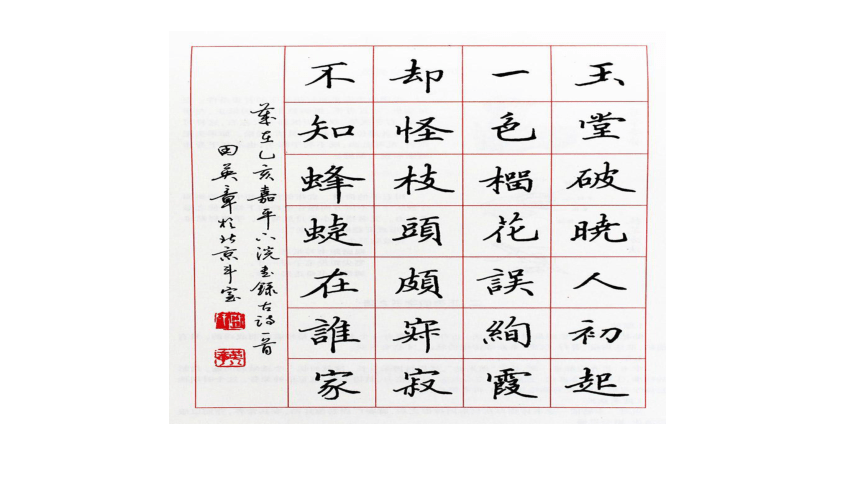 玉堂破暁人初起
一色榴花誤絢霞
却怪枝頭頗寂
不知蜂蜨在誰家
歲在乙亥嘉平下浣書錄古詩一首
田英章於北京斗室